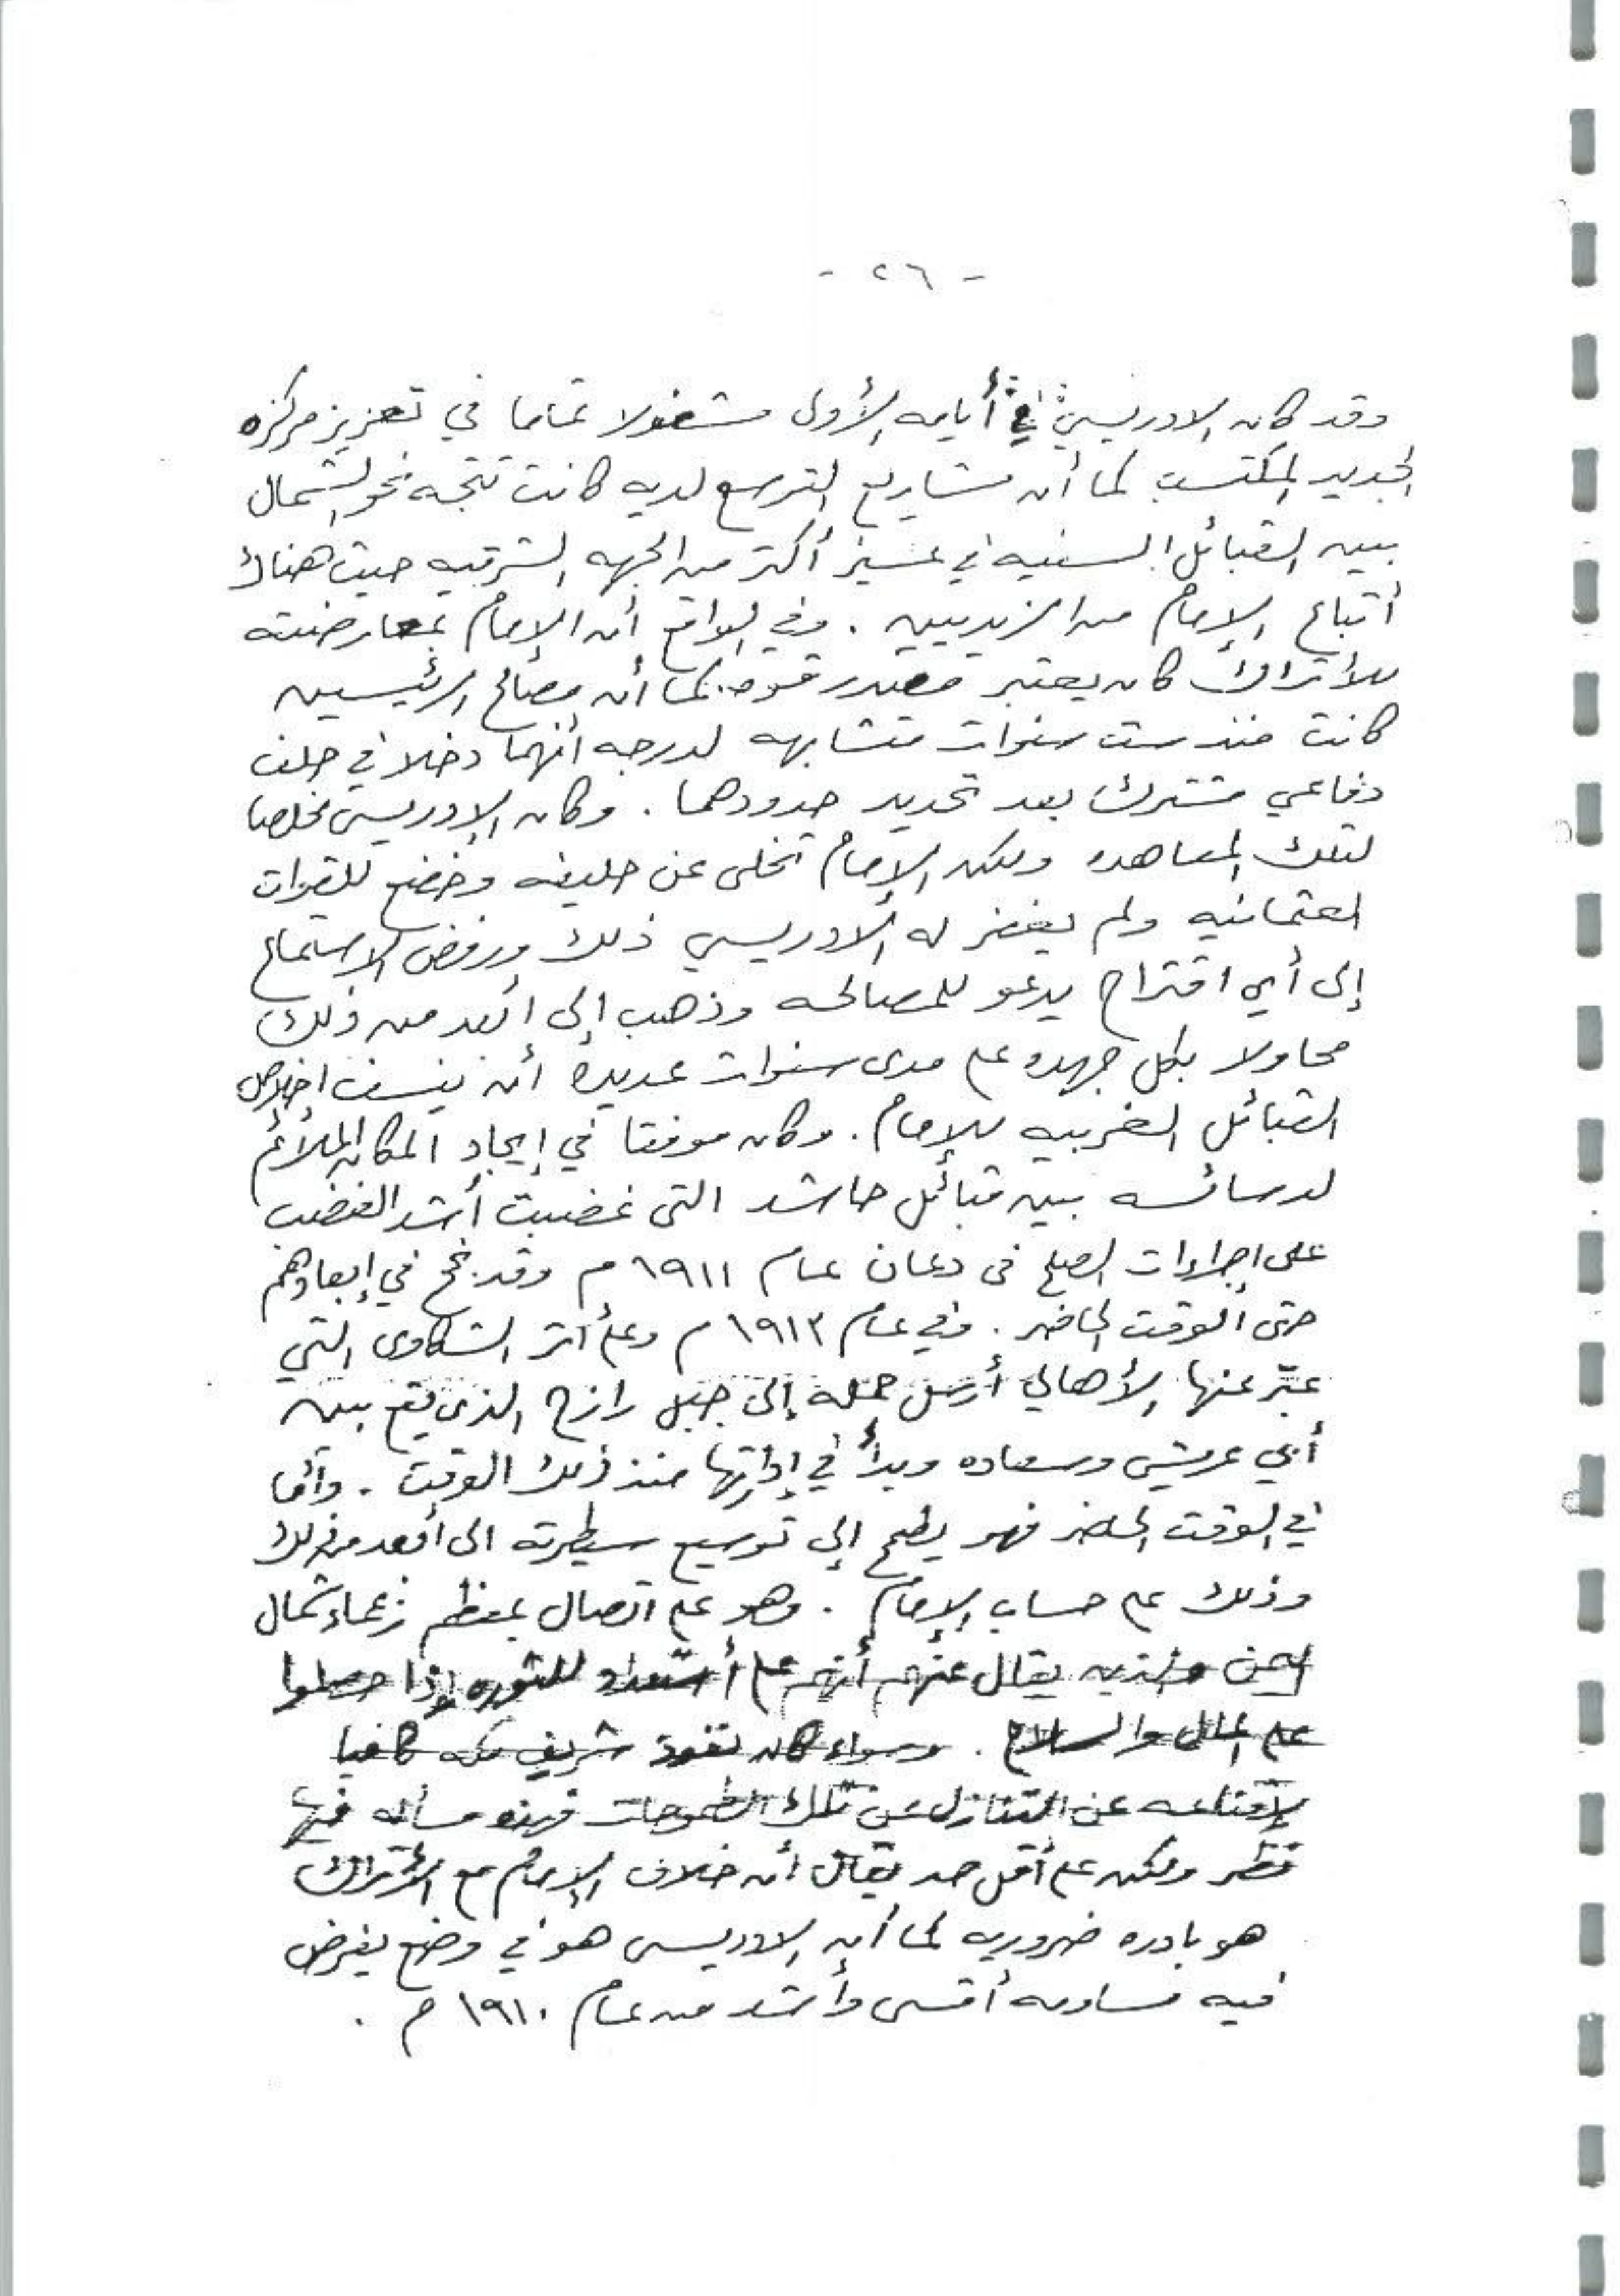 - ٢٦ -
وقد كان الادريسي في أيامه الأولى مشغولا تماما في تعزيز مركزه
الجديد المكتسب كما أن مشاريع التوسع لديه كانت تتجه نحو الشمال
بين القبائل السنيه في عسير أكثر من الجهه الشرقيه حيث هناك
أتباع الإمام من الزيديين . وفي الواقع أن الإمام بمعارضته
للأتراك كان يعتبر مصدر قوه . كما أن مصالح الرئيسين
كانت منذ ست سنوات متشابهه لدرجه أنهما دخلا في حلف
دفاعي مشترك بعد تحديد حدودهما . وكان الإدريسي مخلصا
لتلك المعاهده ولكن الإمام تخلى عن حليفه وخضع للقوات
العثمانيه ولم يغفر له الادريسي ذلك ورفض الاستماع
إلى أي اقتراح يدعو للمصالحه وذهب إلى أبعد من ذلك
محاولا بكل جهده على مدى سنوات عديده أن ينسف اخلاص
القبائل الغربيه للإمام . وكان موفقا في إيجاد المكان الملائم
لدسائسه بين قبائل حاشد التى غضبت أشد الغضب
على إجراءات الصلح فى دعان عام ١٩١١ م وقد نجح في إبعادهم
حتى الوقت الحاضر . وفي عام ١٩١٣ م وعلى أثر الشكاوى التي
عبّر عنها الأهالي أرسل حمله إلى جبل رازح الذى يقع بين
أبي عريش وسعاده وبدأ في إدارتها منذ ذلك الوقت . وأما
في الوقت الحاضر فهو يطمح إلى توسيع سيطرته الى أبعد من ذلك
وذلك على حساب الإمام . وهو على اتصال بمعظم زعماء شمال
اليمن والذين يقال عنهم أنهم على أستعداد للثوره إذا حصلوا
على المال والسلاح . وسواء كان نفوذ شريف مكه كافيا
لإقناعه عن التنازل عن تلك الطموحات فهذه مسأله فيها
نظر ولكن على أقل حد يقال أن خلاف الإمام مع الأتراك
هو بادره ضروريه كما أن الادريسى هو في وضع يفرض
فيه مساومه أقسى وأشد من عام ١٩١٠ م .